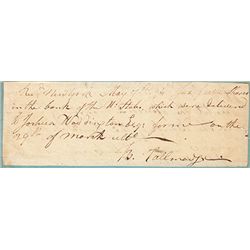 Rec'd New York May 7th
in the bank of the U. States, which were delivered
to Joshua Waddington Esq: for me on the
29th of March ult:
B. Tallmadge